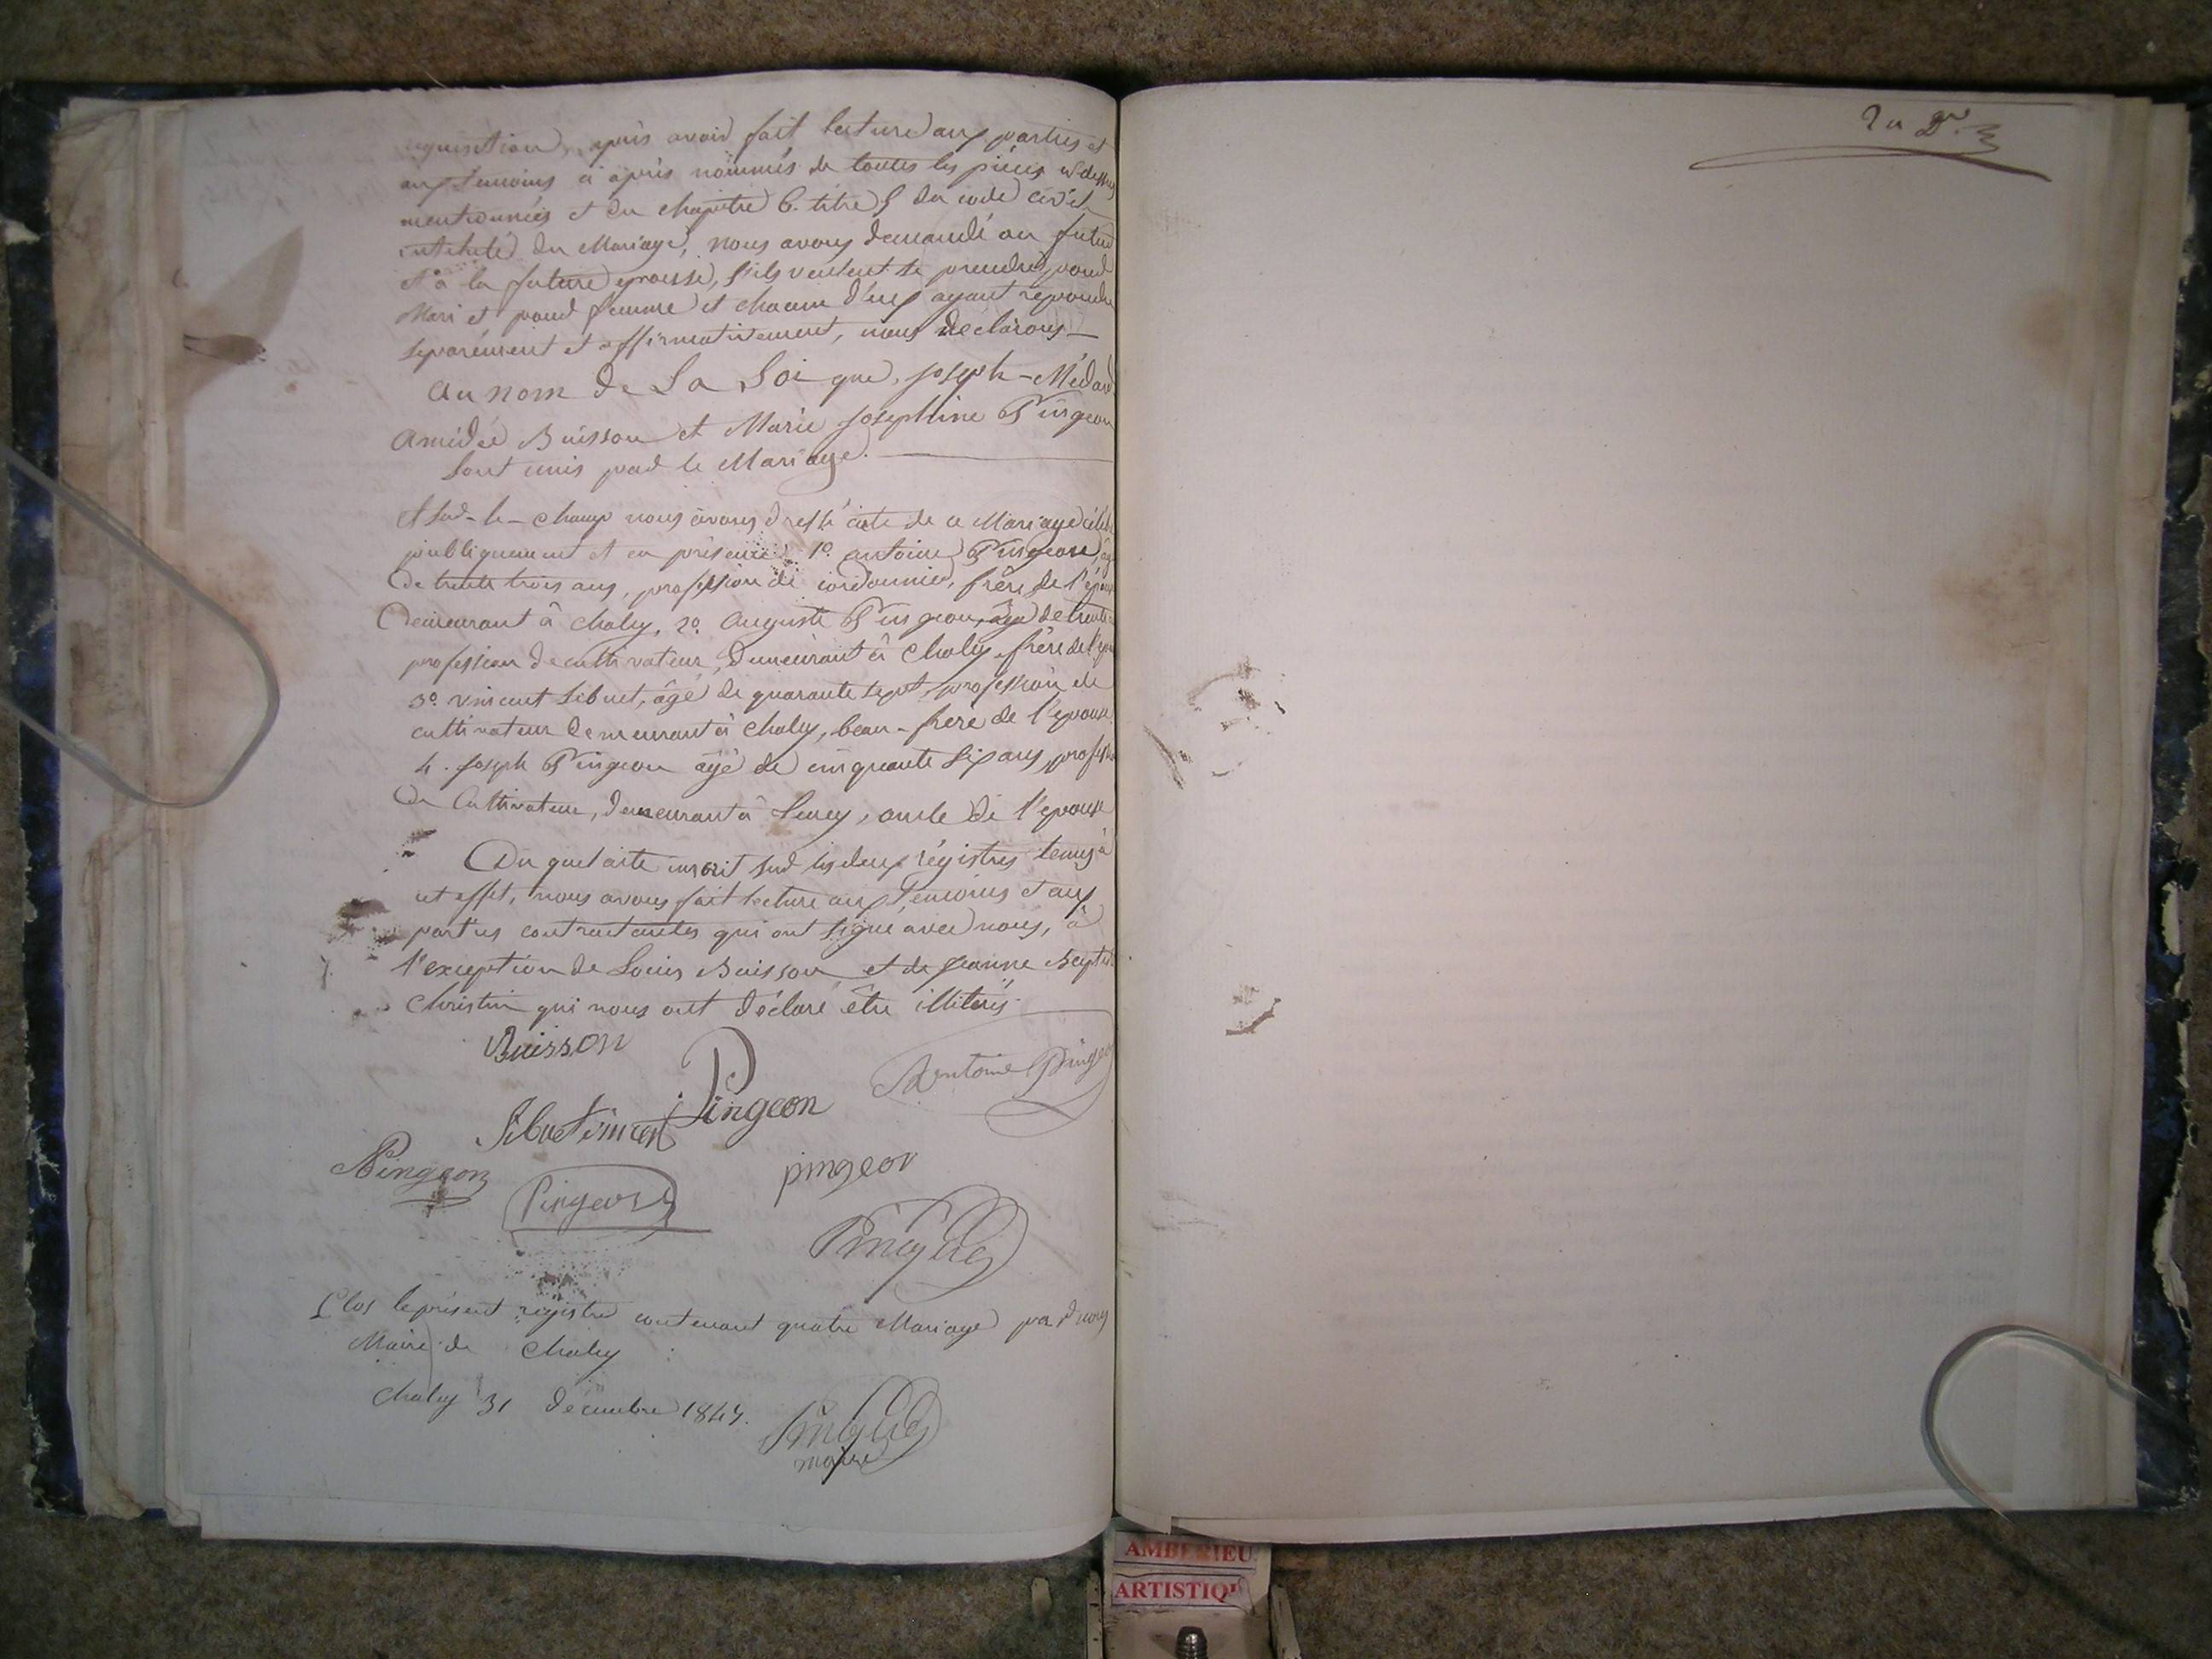 réquisition, après avoir fait lecture aux parties et
aux temoins ci après nommés de toutes les pièces ci dessus
mentionnées et du chapitre 6. titre 5 du code civil
intitulé du Mariage, nous avons demandé au futur
et à la future epouse, s'ils veulent se prendre pour
Mari et pour femme et chacun d'eux ayant repondu
separément et affirmativement, nous declarons
au nom de La Loi que, joseph-Médard
Amédée Buisson et Marie josephine Pingeon
sont unis par le Mariage.
Et sur-le-champ nous avons dressé acte de ce Mariage
publiquement et en présence 1º. antoine Pingeon,
de trente trois ans, profession de cordonnier, frère de l'épouse
Demeurant à Chaley, 2º. Auguste Pingeon, âgé de trente
profession de cultivateur, Demeurant à Chaley, frère de
3º. vincent Sibuet, âgé de quarante sept, profession de
cultivateur Demeurant à Chaley, beau-frère de l'epouse
4. joseph Pingeon âgé de cinquante six ans,
De Cultivateur, demeurant à, oncle de l'epouse
Du quel acte inscrit sur les deux régistres tenus à
cet effet, nous avons fait lecture aux Temoins et aux
parties contractantes qui ont signé avec nous, à
l'exception de Louis Buisson et de jeanne
Christin qui nous ont déclaré être illitérés
Buisson
Antoine Pingeon
Pingeon
Sibuet vincent
Pingeon
pingeon
Pingeon
Clos le présent registre contenant quatre Mariage par nous
Maire de Chaley
Chaley 31 décembre
maire
AMBERIEU
ARTISTIQ